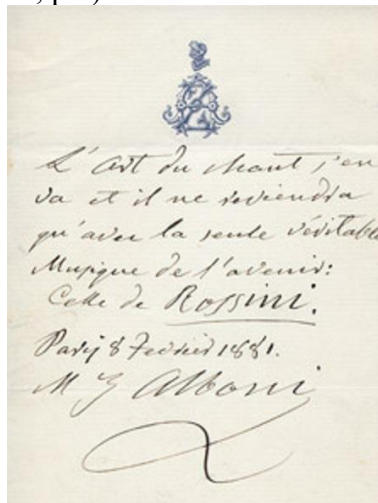 L'art du chant s'en
va et il ne reviendra
qu'avec la seule véritable
Musique de l'avenir:
Celle de Rossini.
Paris 8 Fevrier 1881.
M Z Alboni